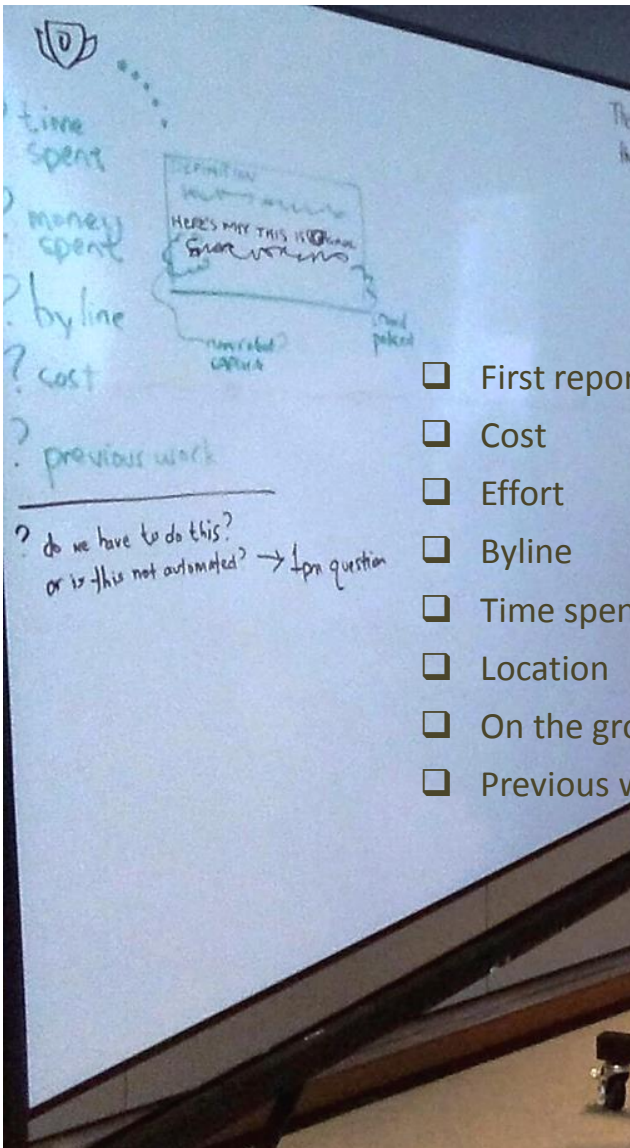 time
spent
? money
spent
? byline
? cost
? previous work
DEFINITION
HERE'S WHY THIS IS
? do we have to do this?
or is this not automated? → 1pm question
First repor
Cost
Effort
Byline
Time spen
Location
On the gro
Previous w